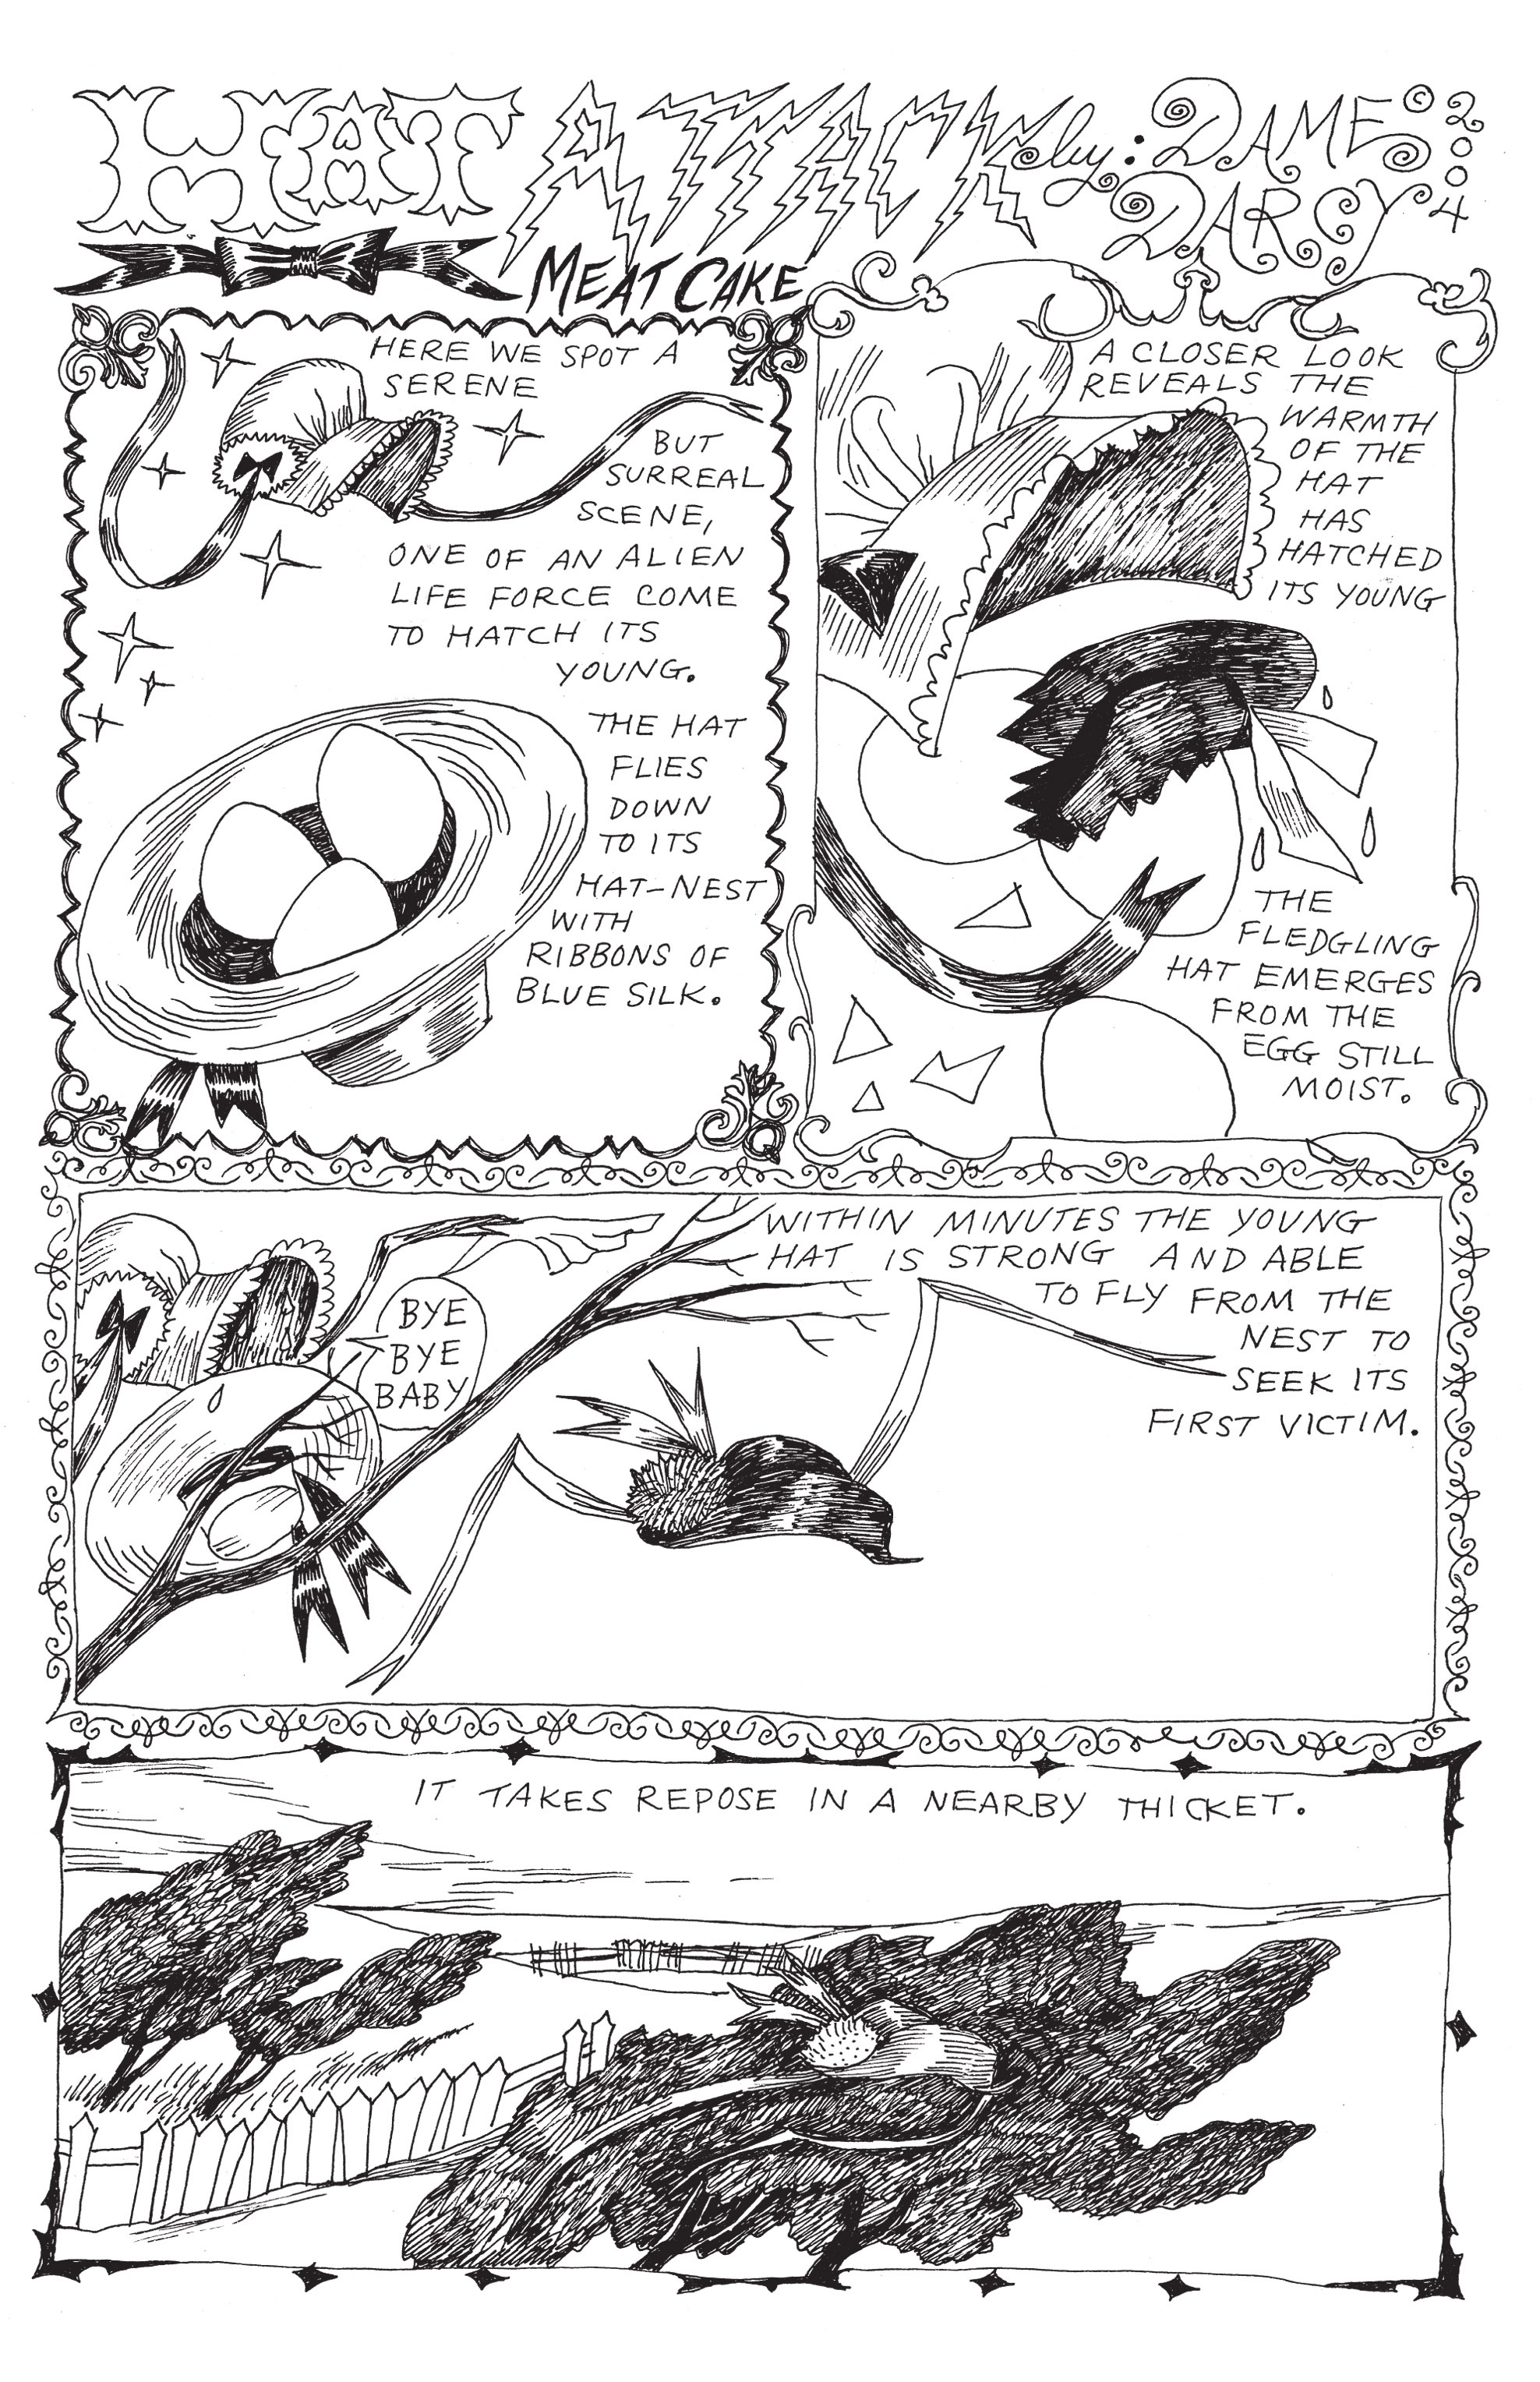 HAT ATTACK by: DAME DARCY © 2004
MEAT CAKE
HERE WE SPOT A
SERENE
BUT
SURREAL
SCENE,
ONE OF AN ALIEN
LIFE FORCE COME
TO HATCH ITS
YOUNG.
THE HAT
FLIES
DOWN
TO ITS
HAT-NEST
WITH
RIBBONS OF
BLUE SILK.
A CLOSER LOOK
REVEALS THE
WARMTH
OF THE
HAT
HAS
HATCHED
ITS YOUNG
THE
FLEDGLING
HAT EMERGES
FROM THE
EGG STILL
MOIST.
BYE
BYE
BABY
WITHIN MINUTES THE YOUNG
HAT IS STRONG AND ABLE
TO FLY FROM THE
NEST TO
SEEK ITS
FIRST VICTIM.
IT TAKES REPOSE IN A NEARBY THICKET.